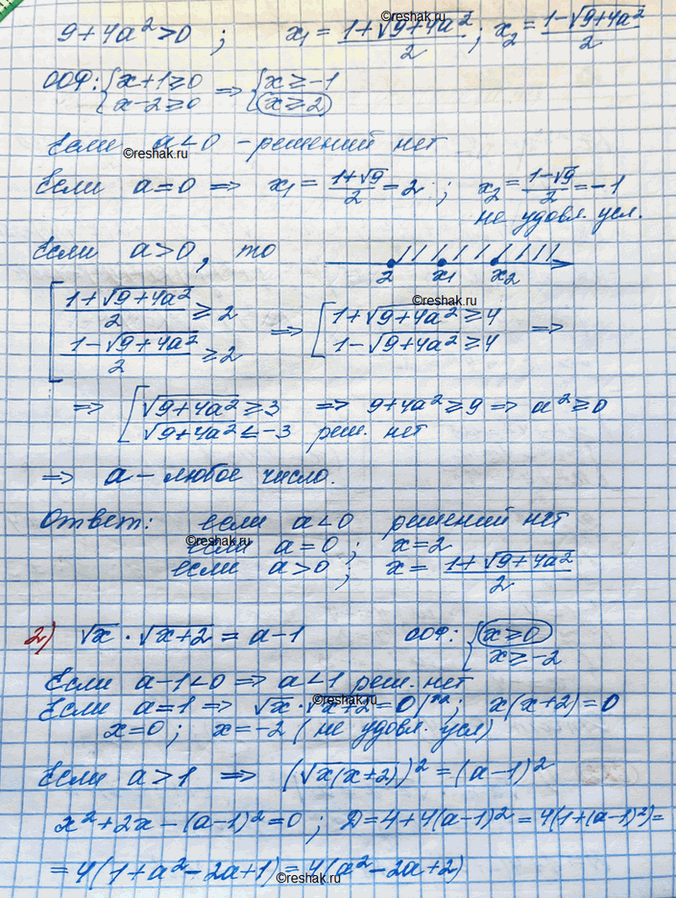 ©reshak.ru
9+4a²>0 ; x₁ = (1+√(9+4a²))/2 ; x₂ = (1-√(9+4a²))/2
ООФ: { x+1≥0 ⇒ { x≥-1
x-2≥0 x≥2
Если a<0 - решений нет
©reshak.ru
Если a=0 ⇒ x₁ = (1+√9)/2 = 2 ; x₂ = (1-√9)/2 = -1
не удовл. усл.
Если a>0, то 2 x₁ x₂
©reshak.ru
[ (1+√(9+4a²))/2 ≥ 2 ⇒ [ 1+√(9+4a²) ≥ 4 ⇒
(1-√(9+4a²))/2 ≥ 2 1-√(9+4a²) ≥ 4
⇒ [ √(9+4a²) ≥ 3 ⇒ 9+4a² ≥ 9 ⇒ a² ≥ 0
√(9+4a²) ≤ -3 реш. нет
⇒ a - любое число.
Ответ: если a<0 решений нет
©reshak.ru
если a=0 ; x=2
если a>0 ; x = (1+√(9+4a²))/2
2) √x · √(x+2) = a-1 ООФ: { x≥0
x≥-2
Если a-1<0 ⇒ a<1 реш. нет
©reshak.ru
Если a=1 ⇒ √x · √(x+2) = 0 |² ; x(x+2)=0
x=0 ; x=-2 (не удовл. усл)
Если a>1 ⇒ (√(x(x+2)))² = (a-1)²
x²+2x-(a-1)²=0 ; D=4+4(a-1)²=4(1+(a-1)²)=
=4(1+a²-2a+1)=4(a²-2a+2)
©reshak.ru